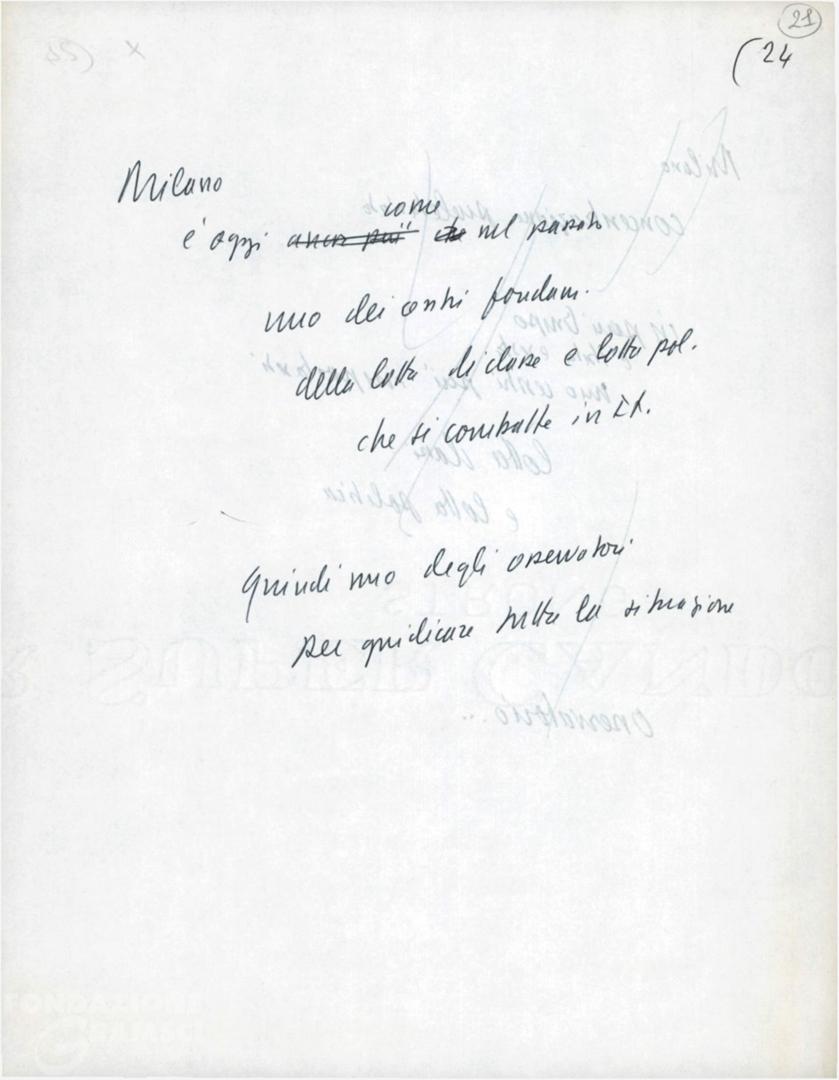 21
(24
Milano
come
è oggi ancor più che nel passato
uno dei centri fondam.
della lotta di classe e lotta pol.
che si combatte in It.
Quindi uno degli osservatori
per giudicare tutta la situazione
Osservatorio...
FONDAZIONE
GRAMSCI